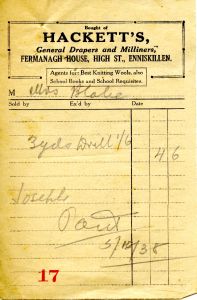 Bought of
HACKETT'S,
General Drapers and Milliners,
FERMANAGH HOUSE, HIGH ST., ENNISKILLEN.
Agents for: Best Knitting Wools, also
School Books and School Requisites.
M Mrs Blake
Sold by Ex'd by Date
3 yds Drill 1/6 4 6
Joseph
Paid
5/12/38
17